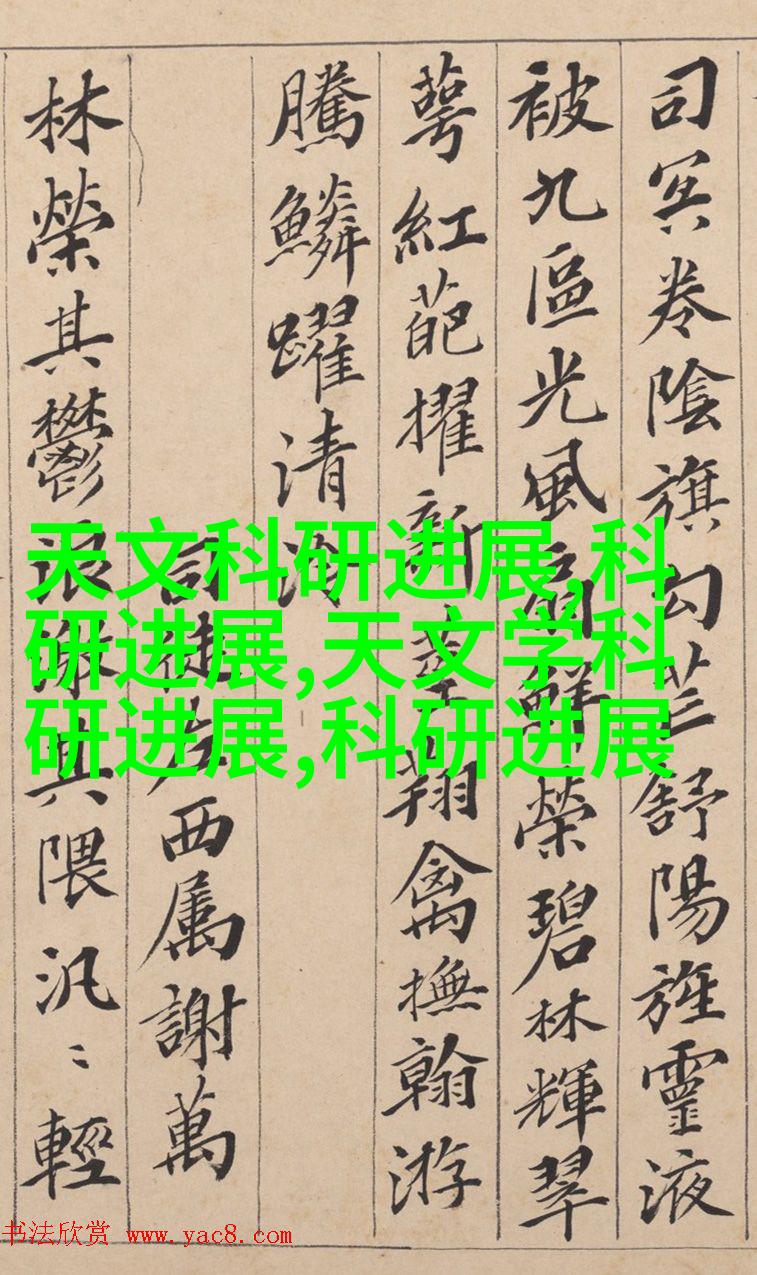 司冥卷陰旗勾芒舒陽旌靈液
被九區光風扇鮮榮碧林輝翠
萼紅葩擢新莖翔禽撫翰游
騰鱗躍清泠
司徒左西属謝萬
林榮其鬱浪激其隈汎〻輕
天文科研进展,科
研进展,天文学科
研进展,科研进展
书法欣赏 www.yac8.com